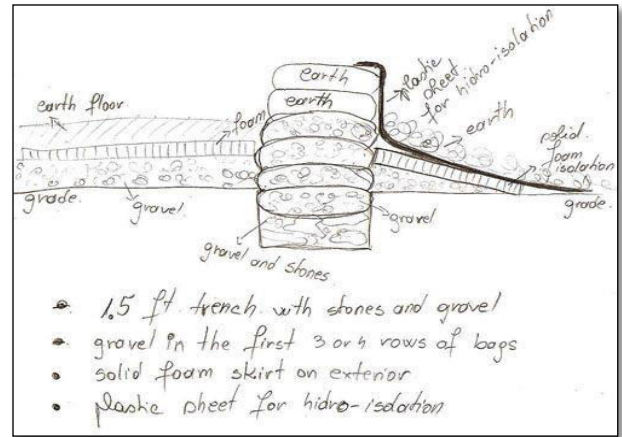 earth
earth
plastic
sheet
for hidro-isolation
earth floor
foam
earth
solid
foam
isolation
grade.
gravel
gravel
grade.
gravel and stones
1.5 ft trench with stones and gravel
gravel in the first 3 or 4 rows of bags
solid foam skirt on exterior
plastic sheet for hidro-isolation